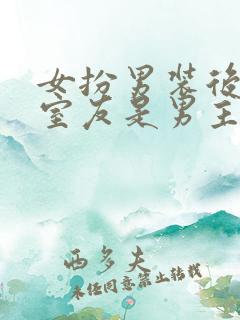 女扮男装後
室友是男主
西多夫
未经同意禁止转载